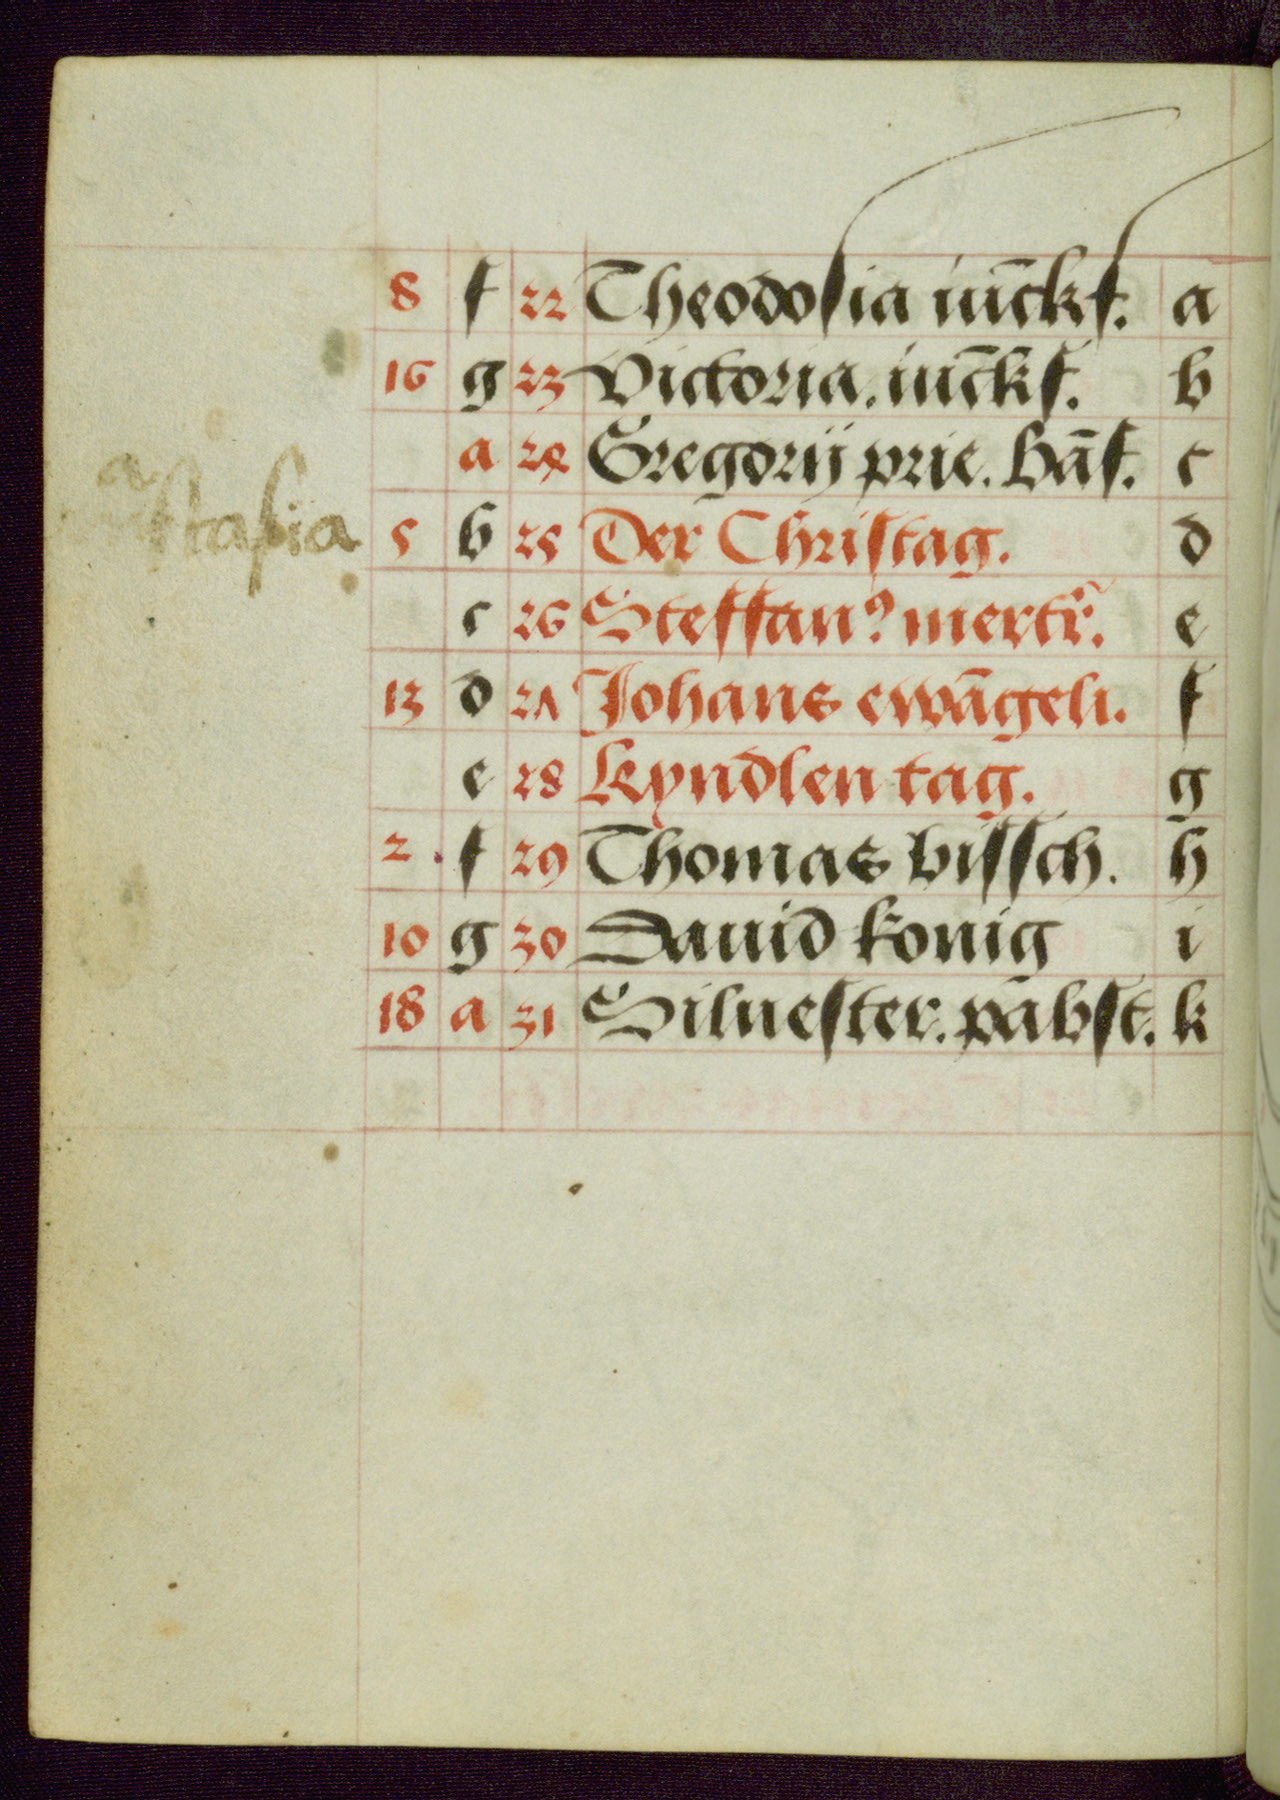 8 f 22 Theodoſia iūckf. a
16 g 23 Victoria. iūckf. b
a 24 Gregorij prie. bāſ. c
ſtaſia
5 b 25 Der Chriſtag. d
c 26 Steffanꝰ mertr̄. e
13 d 27 Johans ewāgeli. f
e 28 Kyndlen tag. g
2 . f 29 Thomas biſſch. h
10 g 30 Dauid konig i
18 a 31 Silueſter. pabſt. k